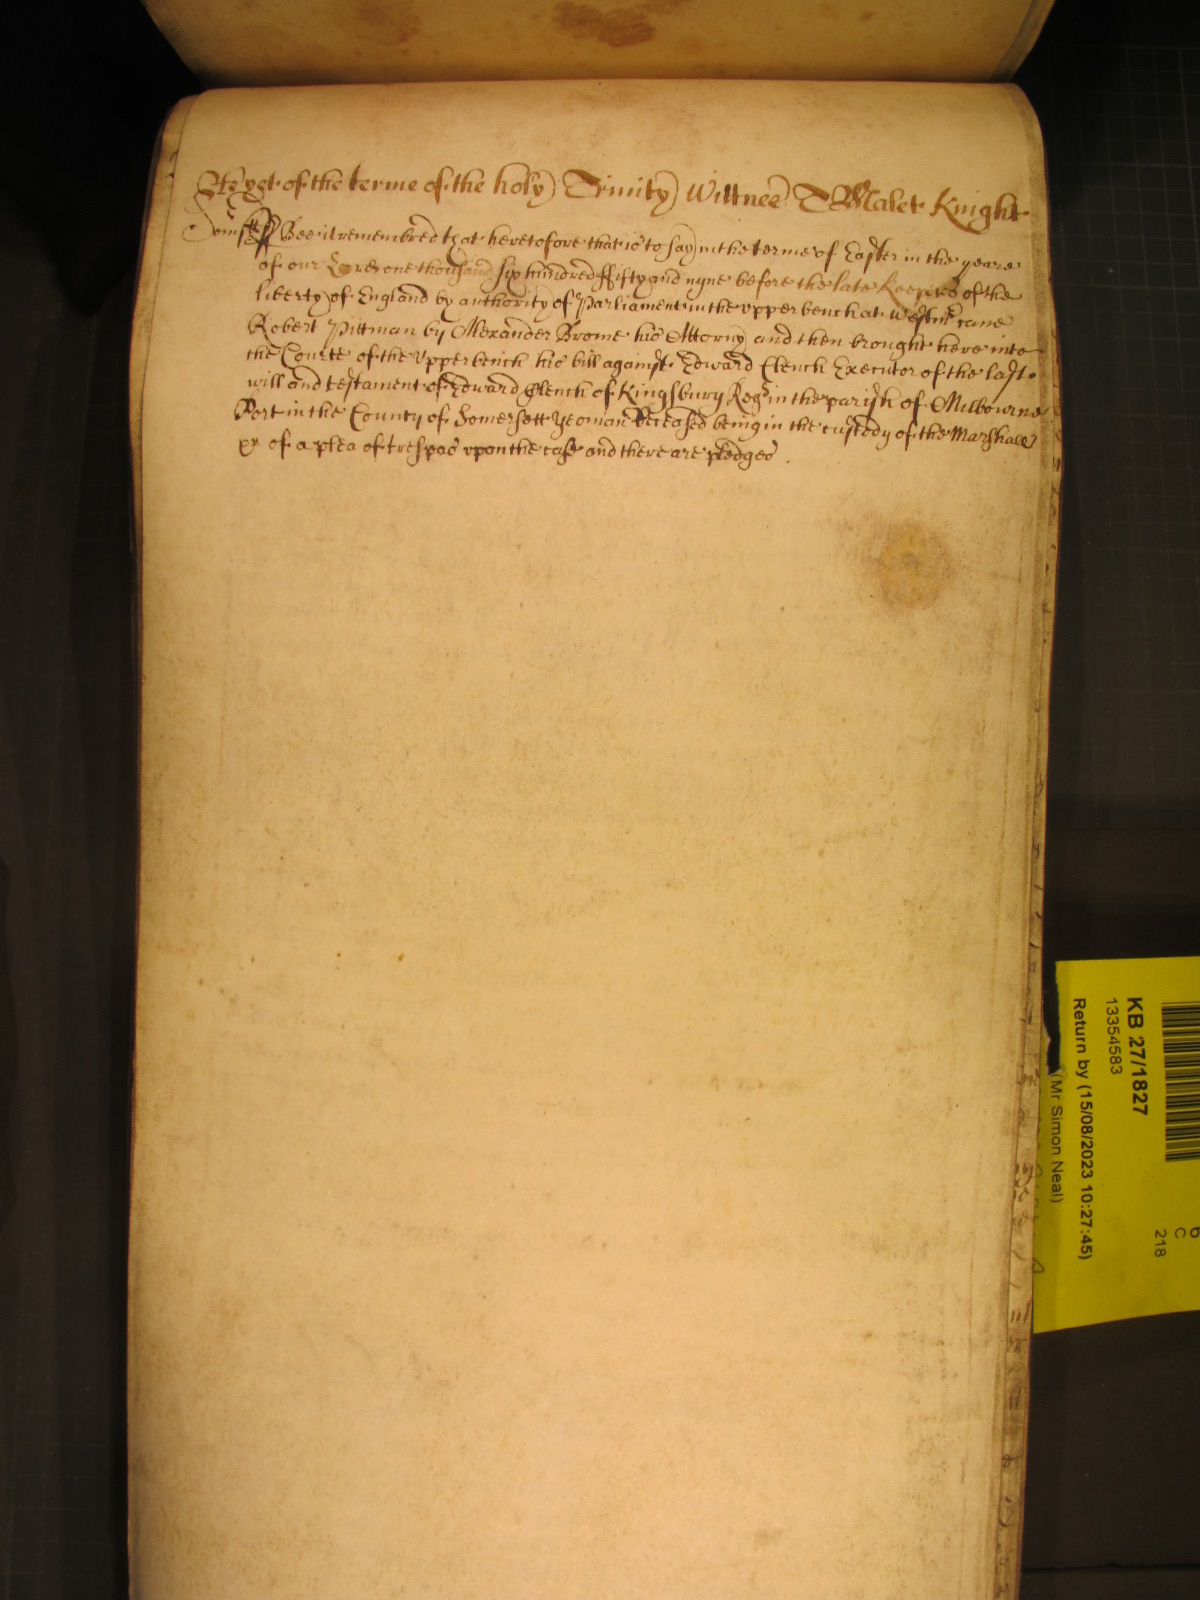 As yet of the terme of the holy Trinity Wittnes T Malet Knight
Som̃sett ss Bee it remembred that heretofore that is to say in the terme of Easter in the yeare
of our Lord one thousand six hundred ffifty and nyne before the late Keepers of the
liberty of England by authority of Parliament in the vpper bench at Westmr came
Robert Pittman by Alexander Brome his Attorny and then brought here into
the Courte of the vpper bench his bill against Edward Clench Executor of the last
will and testament of Edward Clench of Kingsbury Regs in the parish of Milbourne
Port in the County of Somersett yeoman deceased being in the custody of the Marshall
&c of a plea of trespas vpon the case and there are pledges .
KB 27/1827
13354583
Return by (15/08/2023 10:27:45)
(Mr Simon Neal)
6
C
218